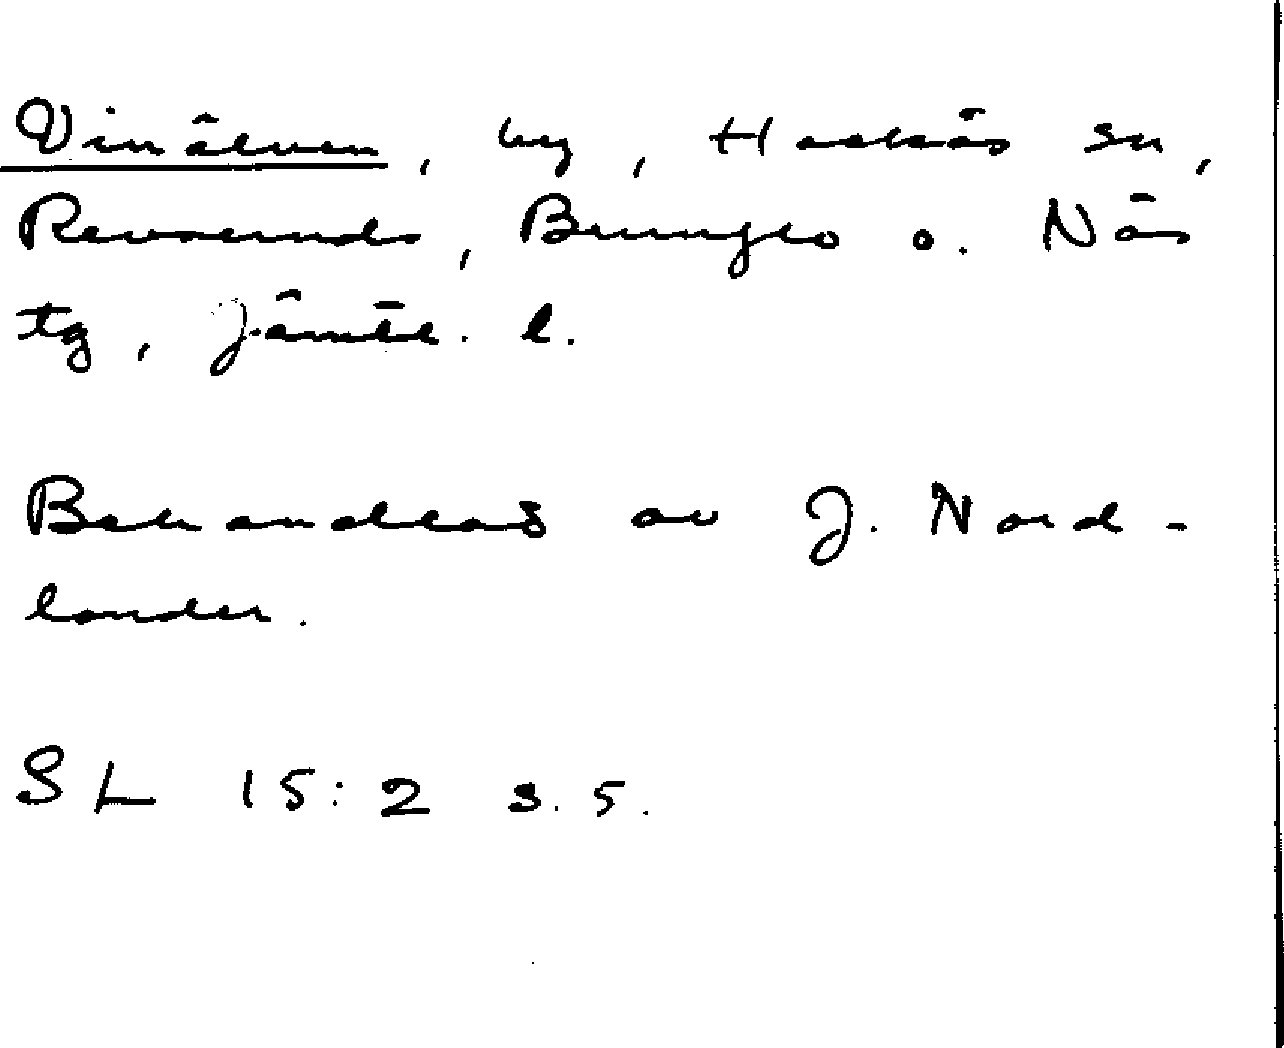 Vinälven, by, Hackås sn,
Revsunds, Brunflo o. Näs
tg, Jämtl. l.
Behandlas av J. Nord-
lander.
SL 15:2 s. 5.